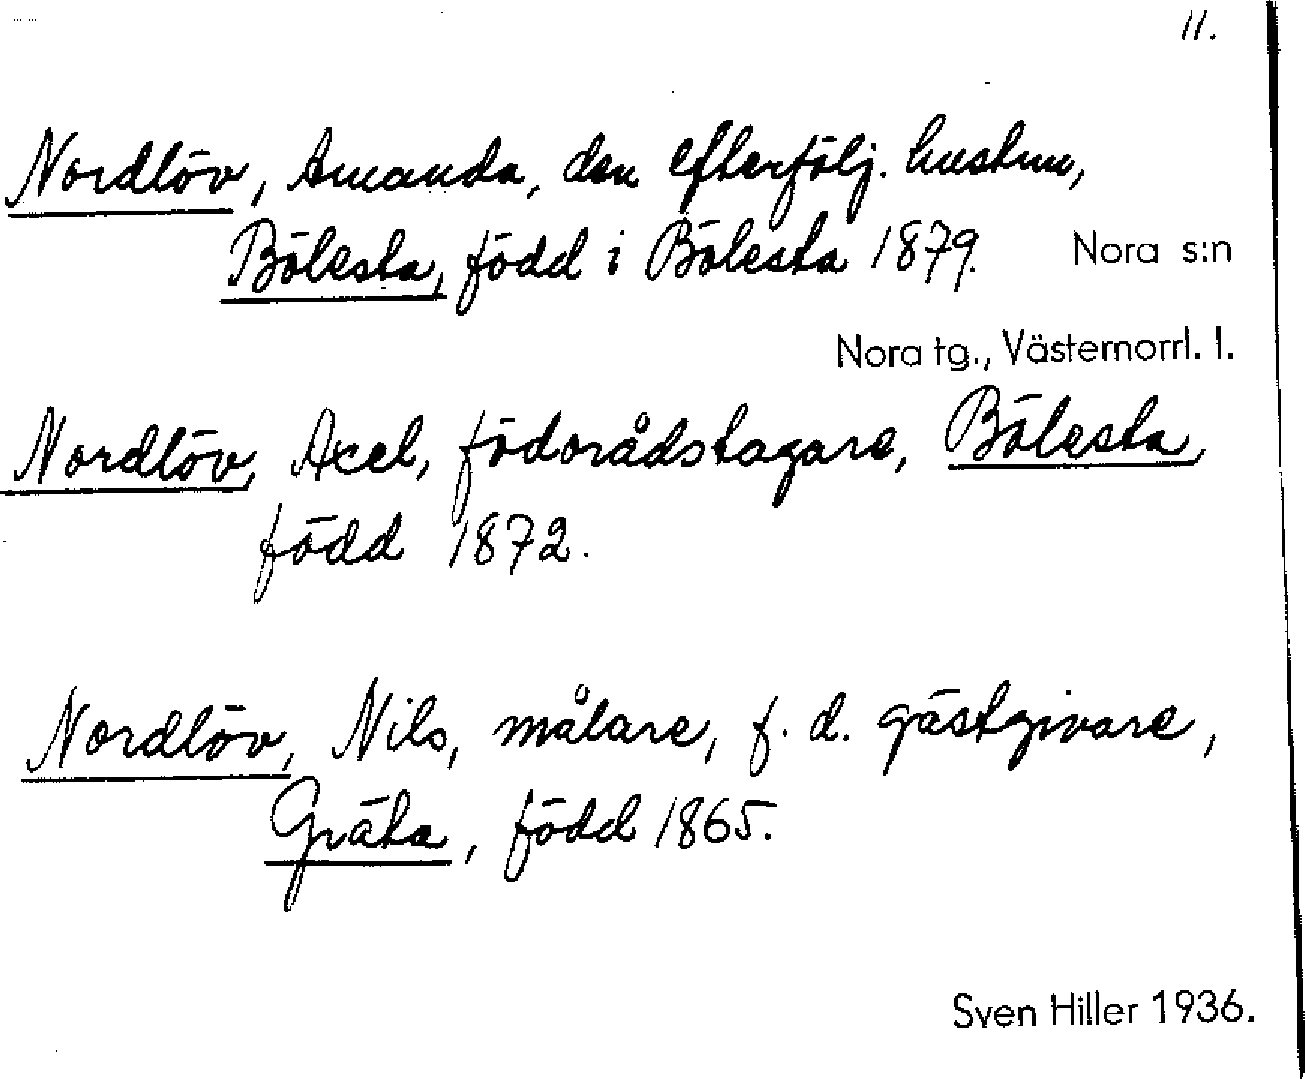 11.
Nordlöv, Amanda, den efterfölj. hustru,
Bölesta, född i Bölesta 1879.
Nora s:n
Nora tg., Västernorrl. l.
Nordlöv, Axel, födorådstagare, Bölesta,
född 1872.
Nordlöv, Nils, målare, f. d. gästgivare,
Gräta, född 1865.
Sven Hiller 1936.